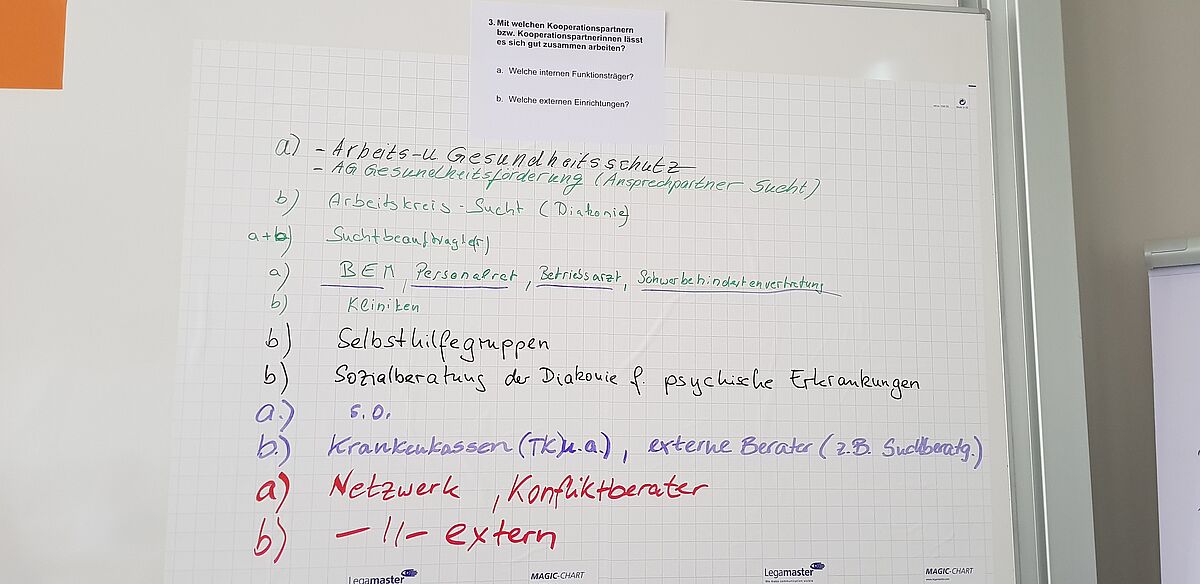 3. Mit welchen Kooperationspartnern
bzw. Kooperationspartnerinnen lässt
es sich gut zusammen arbeiten?
a. Welche internen Funktionsträger?
b. Welche externen Einrichtungen?
a) - Arbeits-u Gesundheitsschutz
- AG Gesundheitsförderung (Ansprechpartner Sucht)
b) Arbeitskreis-Sucht (Diakonie)
a+b) Suchtbeauftragte(r)
a) BEM, Personalrat, Betriebsarzt, Schwerbehindertenvertretung
b) Kliniken
b) Selbsthilfegruppen
b) Sozialberatung der Diakonie f. psychische Erkrankungen
a.) s.o.
b.) Krankenkassen (TK)u.a.), externe Berater (z.B. Suchtberatg.)
a) Netzwerk, Konfliktberater
b) -||- extern
Legamaster MAGIC-CHART Legamaster MAGIC-CHART